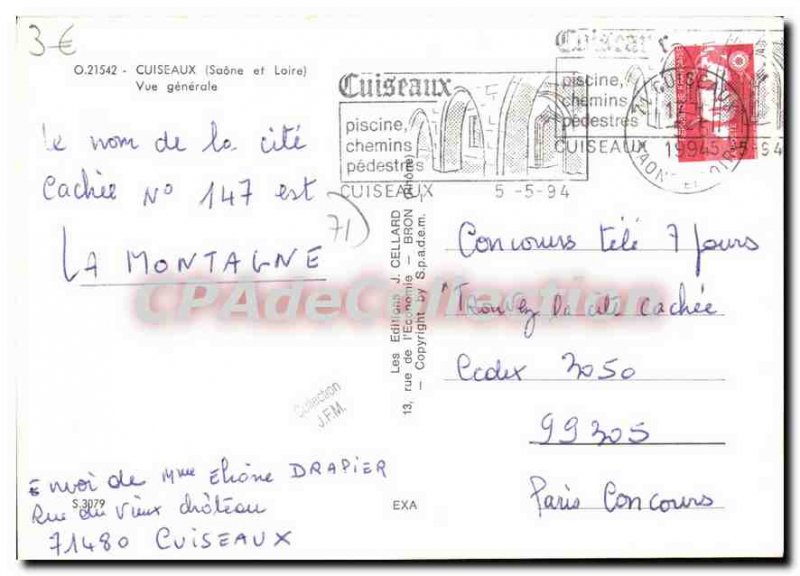 3€
O.21542 - CUISEAUX (Saône et Loire)
Vue générale
Cuiseaux
piscine,
chemins
pédestres
CUISEAUX 5-5-94
Cuiseaux
piscine,
chemins
pédestres
CUISEAUX 5-5-94
1994
le nom de la cité
cachée N° 147 est
LA MONTAGNE
71
Concours télé 7 jours
"Trouvez la cité cachée
Cedex 3050
99305
Paris Concours
CPAdeCollection
Les Editions J. CELLARD
13, rue de l'Economie - BRON (Rhône)
— Copyright by S.p.a.d.e.m. —
Collection
J.F.M.
Envoi de Mme Eliane DRAPIER
S.3079
Rue du Vieux château
71480 CUISEAUX
EXA